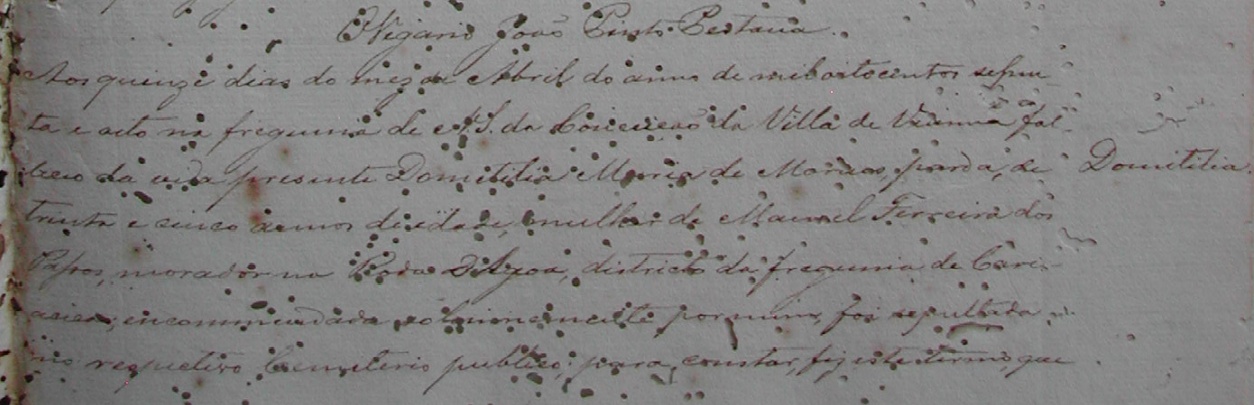 O Vigario João Pinto Pestana.
Aos quinze dias do mez de Abril do anno de mil oitocentos seten-
ta e oito na freguezia de N. S. da Conceição da Villa de Vianna fal-
leceo da vida presente Domitilia Maria de Moraes, parda, de
Domitilia.
trinta e cinco annos de idade, mulher de Manoel Ferreira dos
Passos, morador na districto da freguezia de Cari-
acica; encommendada solemnemente por mim, foi sepultada
no respectivo Cemiterio publico; para constar, fiz este termo, que